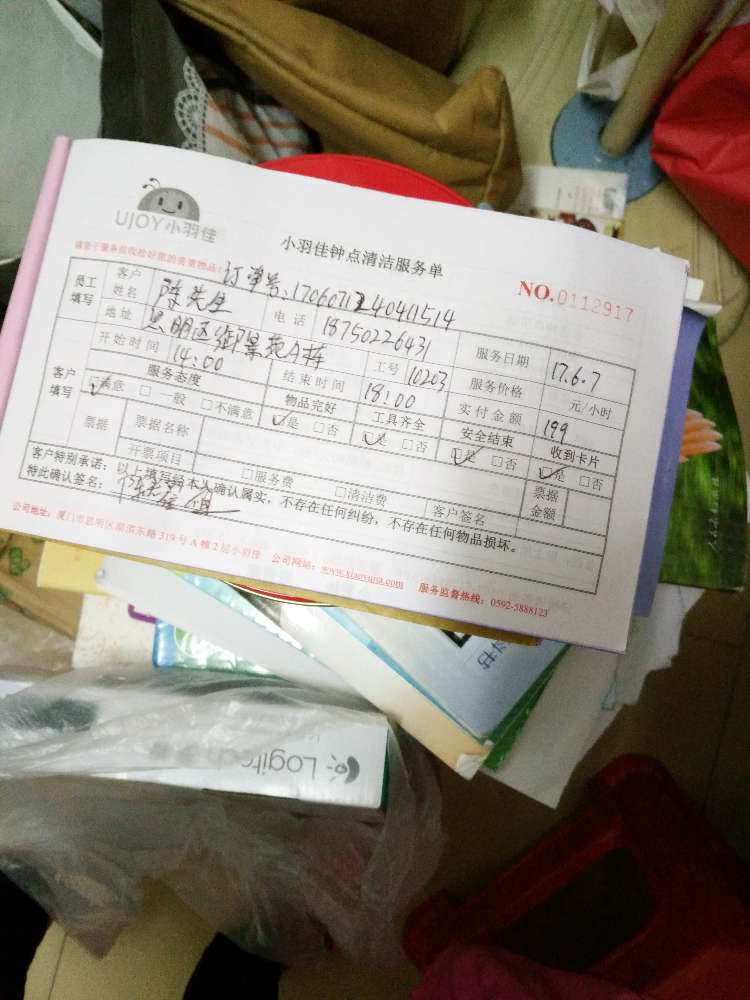 UJOY小羽佳
小羽佳钟点清洁服务单
NO.0112917
订单号:170607124040411514
员工填写
客户姓名 陈先生 电话 18750226431 服务日期 17.6.7
地址 思明区御景苑A栋 工号 10203 服务价格 元/小时
开始时间 14:00 结束时间 18:00 实付金额 199
客户填写
服务态度 物品完好 工具齐全 安全结束 收到卡片
☑满意 □一般 □不满意 ☑是 □否 ☑是 □否 ☑是 □否 ☑是 □否
票据 票据名称 票据金额
开票项目 □服务费 □清洁费 客户签名
客户特别承诺:以上填写经本人确认属实,不存在任何纠纷,不存在任何物品损坏。
特此确认签名:
公司地址:厦门市思明区湖滨东路319号A幢2层小羽佳 公司网站:www.xiaoyujia.com 服务监督热线:0592-5888123
人民教育出版社
Logitech